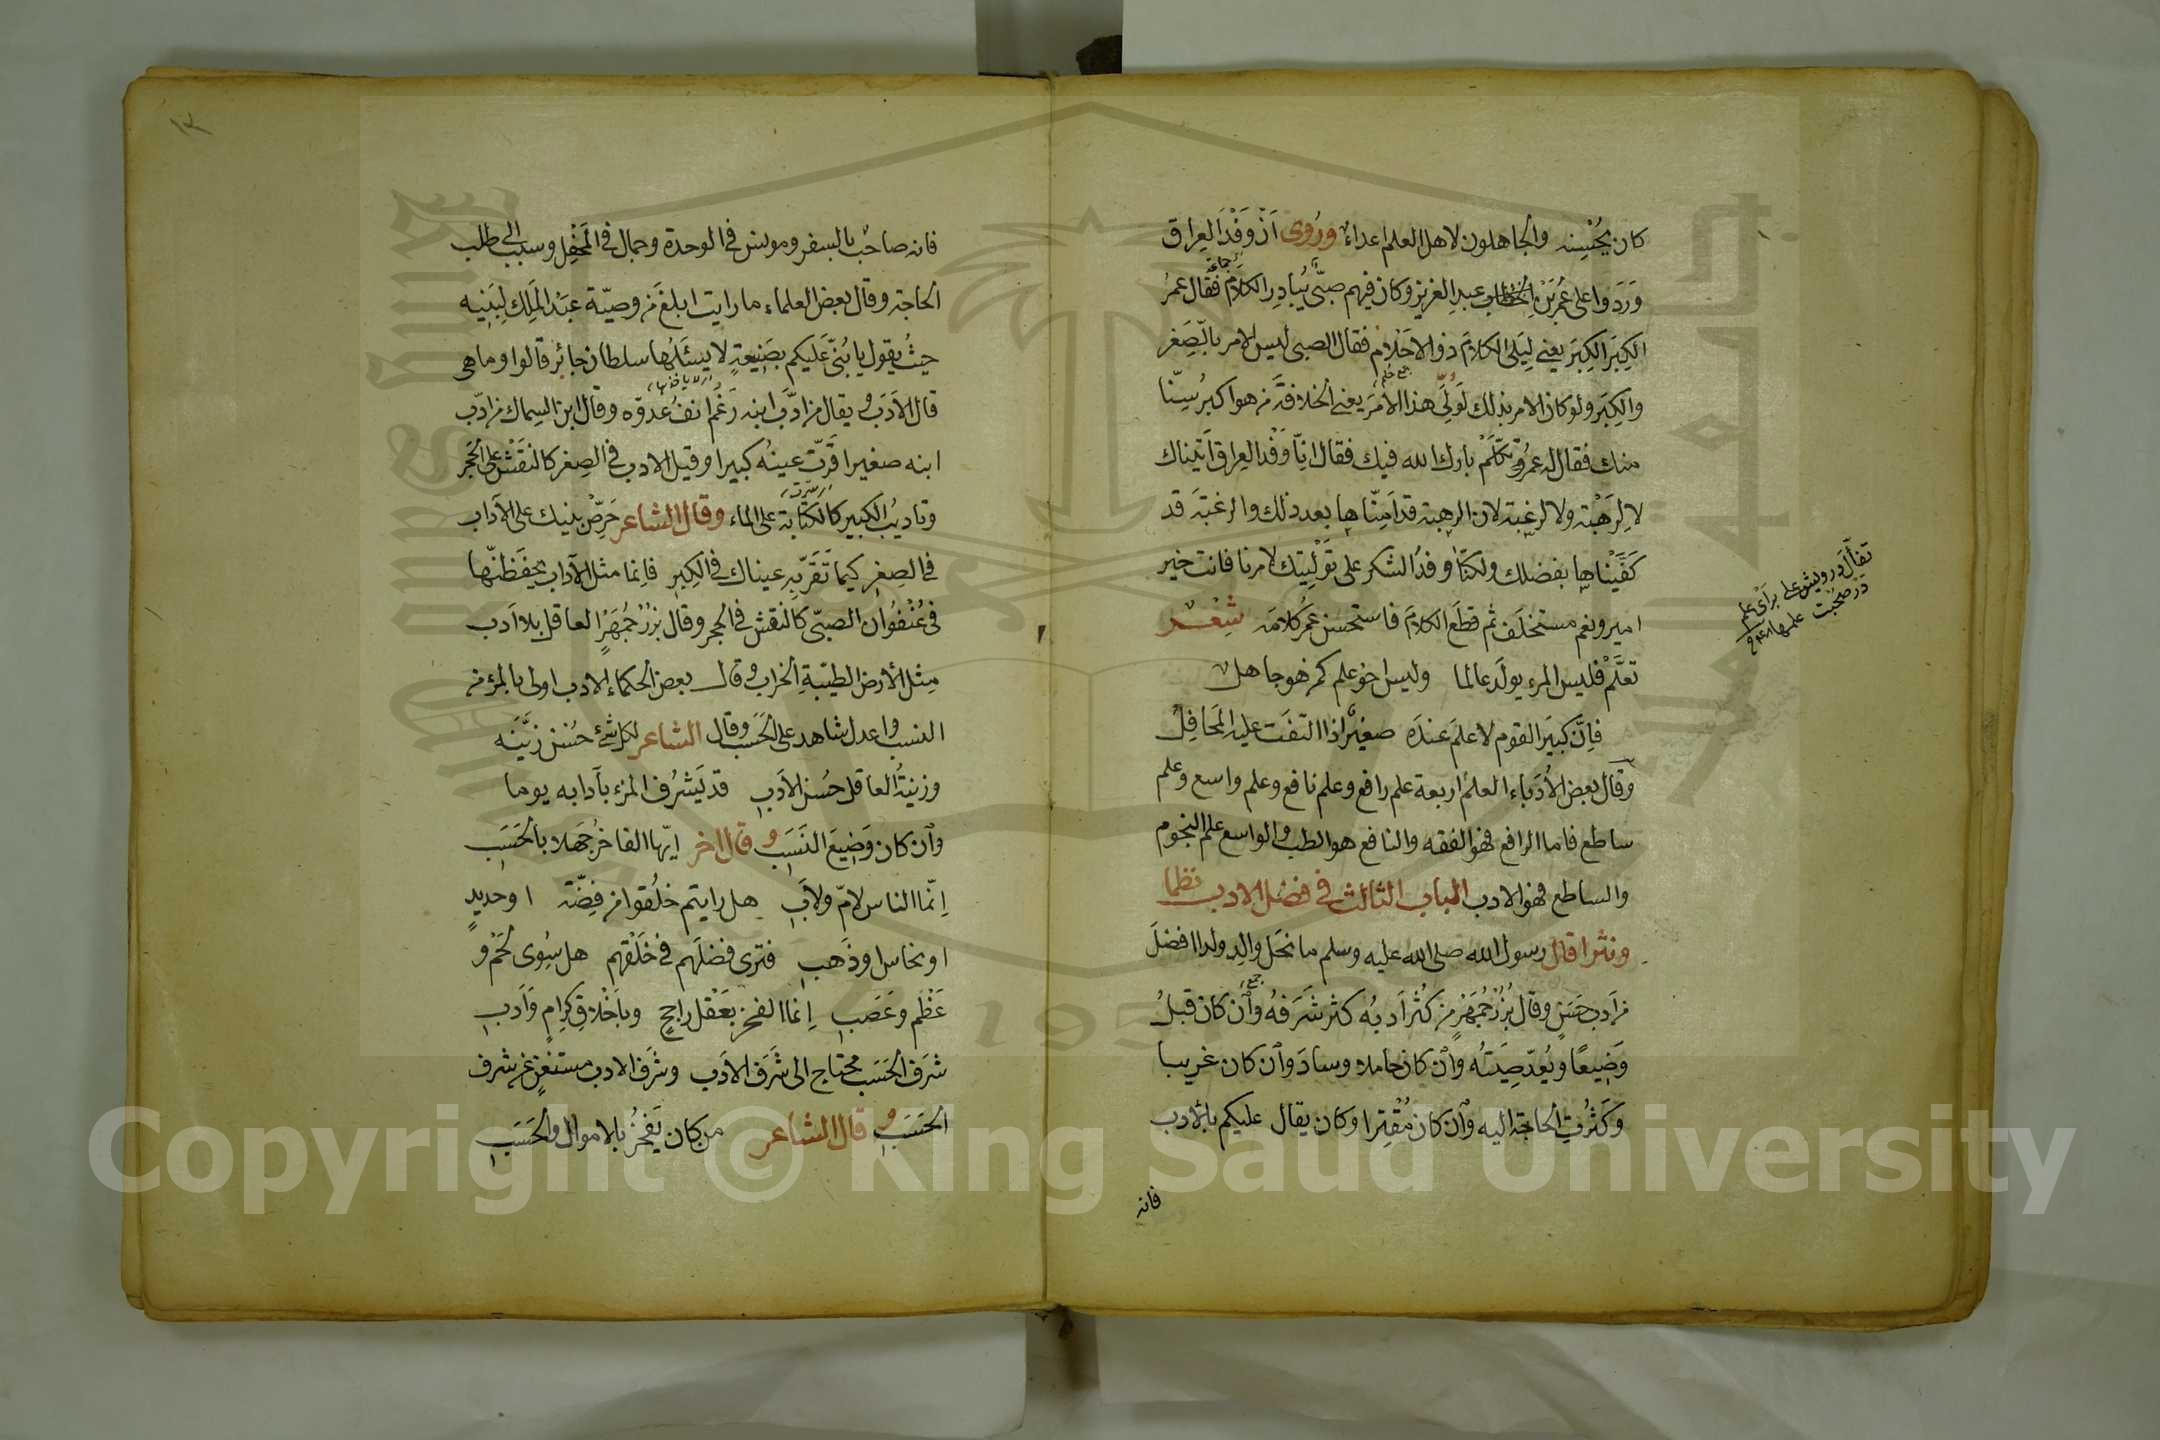 كان يُحْسِنه والجاهلون لاهل العلم اعداءٌ ورُوِىَ اَنّ وَفْدَ العِراق
وَرَدوا على عُمَرَ بْنِ الخطاب عبدِ العَزيز وكان فيهم صَبّى يُبادِر الكلامَ فقال عمرُ
الكِبَرَ الكِبَرَ يعنى لِيَلِى الكلامَ ذوالاحَلام فقال الصبى ليس الامر بالصِّغَر
والكِبَر ولو كان الامر بذلك لَوُلِّىَ هذا الاَمْرَ يعنى الخلافةَ من هو اكبرُ سِنّا
منك فقال له عمرُ تَكَلَّمْ بارك الله فيك فقال انّا وَفْد العِراق اَتَيناك
لا لِرَهْبة ولا لرغبة لان الرهبة قد اَمِنّاها بعدد ذلك والرغبتَه قد
كَفَيْناها بفضلك ولكنّا وفدُ الشكر على تَوْلِيَتِك لامرنا فانت خير
امير ونعم مستخلَف ثم قطع الكلامَ فاستحسن عمرُ كلامَه شِعْر
تعلَّمْ فليس المرء يولد عالما وليس اخو علم كمن هو جاهل
فاِنّ كبيرَ القوم لا علمَ عنده صغيرٌ اذا التفّت عليه المَحافِلُ
وقال بعض الاُدَباء العلم اربعة علم رافع وعلم نافع وعلم واسع وعلم
ساطع فاما الرافع فهو الفقه والنافع هو الطب والواسع علم النجوم
والساطع فهو الادب الباب الثالث فى فضل الادب نظما
ونثرا قال رسول الله صلى الله عليه وسلم ما نحَل والِد ولدا افضلَ
من اَدب حَسَنٍ وقال بُزُرْجُمَهْرَ من كَثُر اَدبُه كثر شَرَفهُ وَاِن كان قبلُ
وَضِيعًا وبُعدَ صِيتُه وَاِن كان خاملا وسادَ وَاِن كان غريبا
وكَثُرتِ الحاجة اليه وَاِن كان مُقْتِرا وكان يقال عليكم بالادب
فانه
تفأّل درويش على براى علم
در صحبت علمها
١٢
فانه صاحبٌ بالسفر ومونس فى الوحدة وجمال فى المَحْفِل وسبب الى طلب
الحاجة وقال بعض العلماء ما رايت ابلغَ من وصيّة عَبْد المَلِك لِبَنِيه
حيثُ يقول يا بَنىّ عَليكم بصَنِيعةٍ لا يَسْئَلُها سلطان جائر قالوا وما هى
قال الاَدَب و يقال من ادّب ابنه رَغَم انفُ عَدوّه وقال ابن السِماك من ادّب
ابنه صغيرا قرّت عينُه كبيرا وقيل الادب فى الصِغر كالنقَّش على الحَجَر
وتاديُب الكبير كالكتابة على الماء وقال الشاعر حَرِّصْ بَنيك على الآداب
فى الصِغر كيما تَقَرَّ به عيناك فى الكِبرِ فاِنما مثل الآداب يَحفَظنّها
فى عُنْفُوان الصبّى كالنقش فى الحجر وقال بُزُرْجُمَهْرُ العاقل بلا اَدب
مِثل الأرض الطيّبةِ الخراب وقال بعض الحكماء الادب اولى بالمرء من
النسب واعدل شاهد على الحَسَب وقال الشاعر لكل شئ حُسْن زيَّنَه
وزينةُ العاقل حُسْن الاَدبِ قد يَشرُف المرء بآدابه يوما
وَاِن كان وَضِيعَ النَسَبِ وقال اخر ايّها الفاخرُ جَهلا بالحَسَبِ
اِنّما الناس لامّ ولاَبِ هل رايتم خلُقوا من فِضّة اوحديدٍ
او نحاس اوذَهبِ فترى فضلَهم فى خَلْقهم هل سِوى لَحْمٍ و
عَظْم وعَصَبِ اِنما الفخرُ بعَقْل راجحٍ وباَخْلاقٍ كِرامٍ وَاَدبِ
شَرَف الحَسَب محتاج الى شَرَف الاَدَبِ وشَرَف الادب مستغنٍ عن شرف
الحَسَب وقال الشاعر من كان يَفخرُ بالاموال والحَسَبِ
Copyright © King Saud University